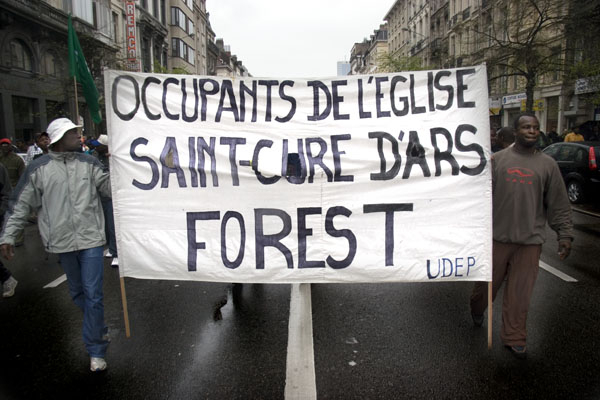 OCCUPANTS DE L'ÉGLISE
SAINT CURE D'ARS
FOREST
UDEP